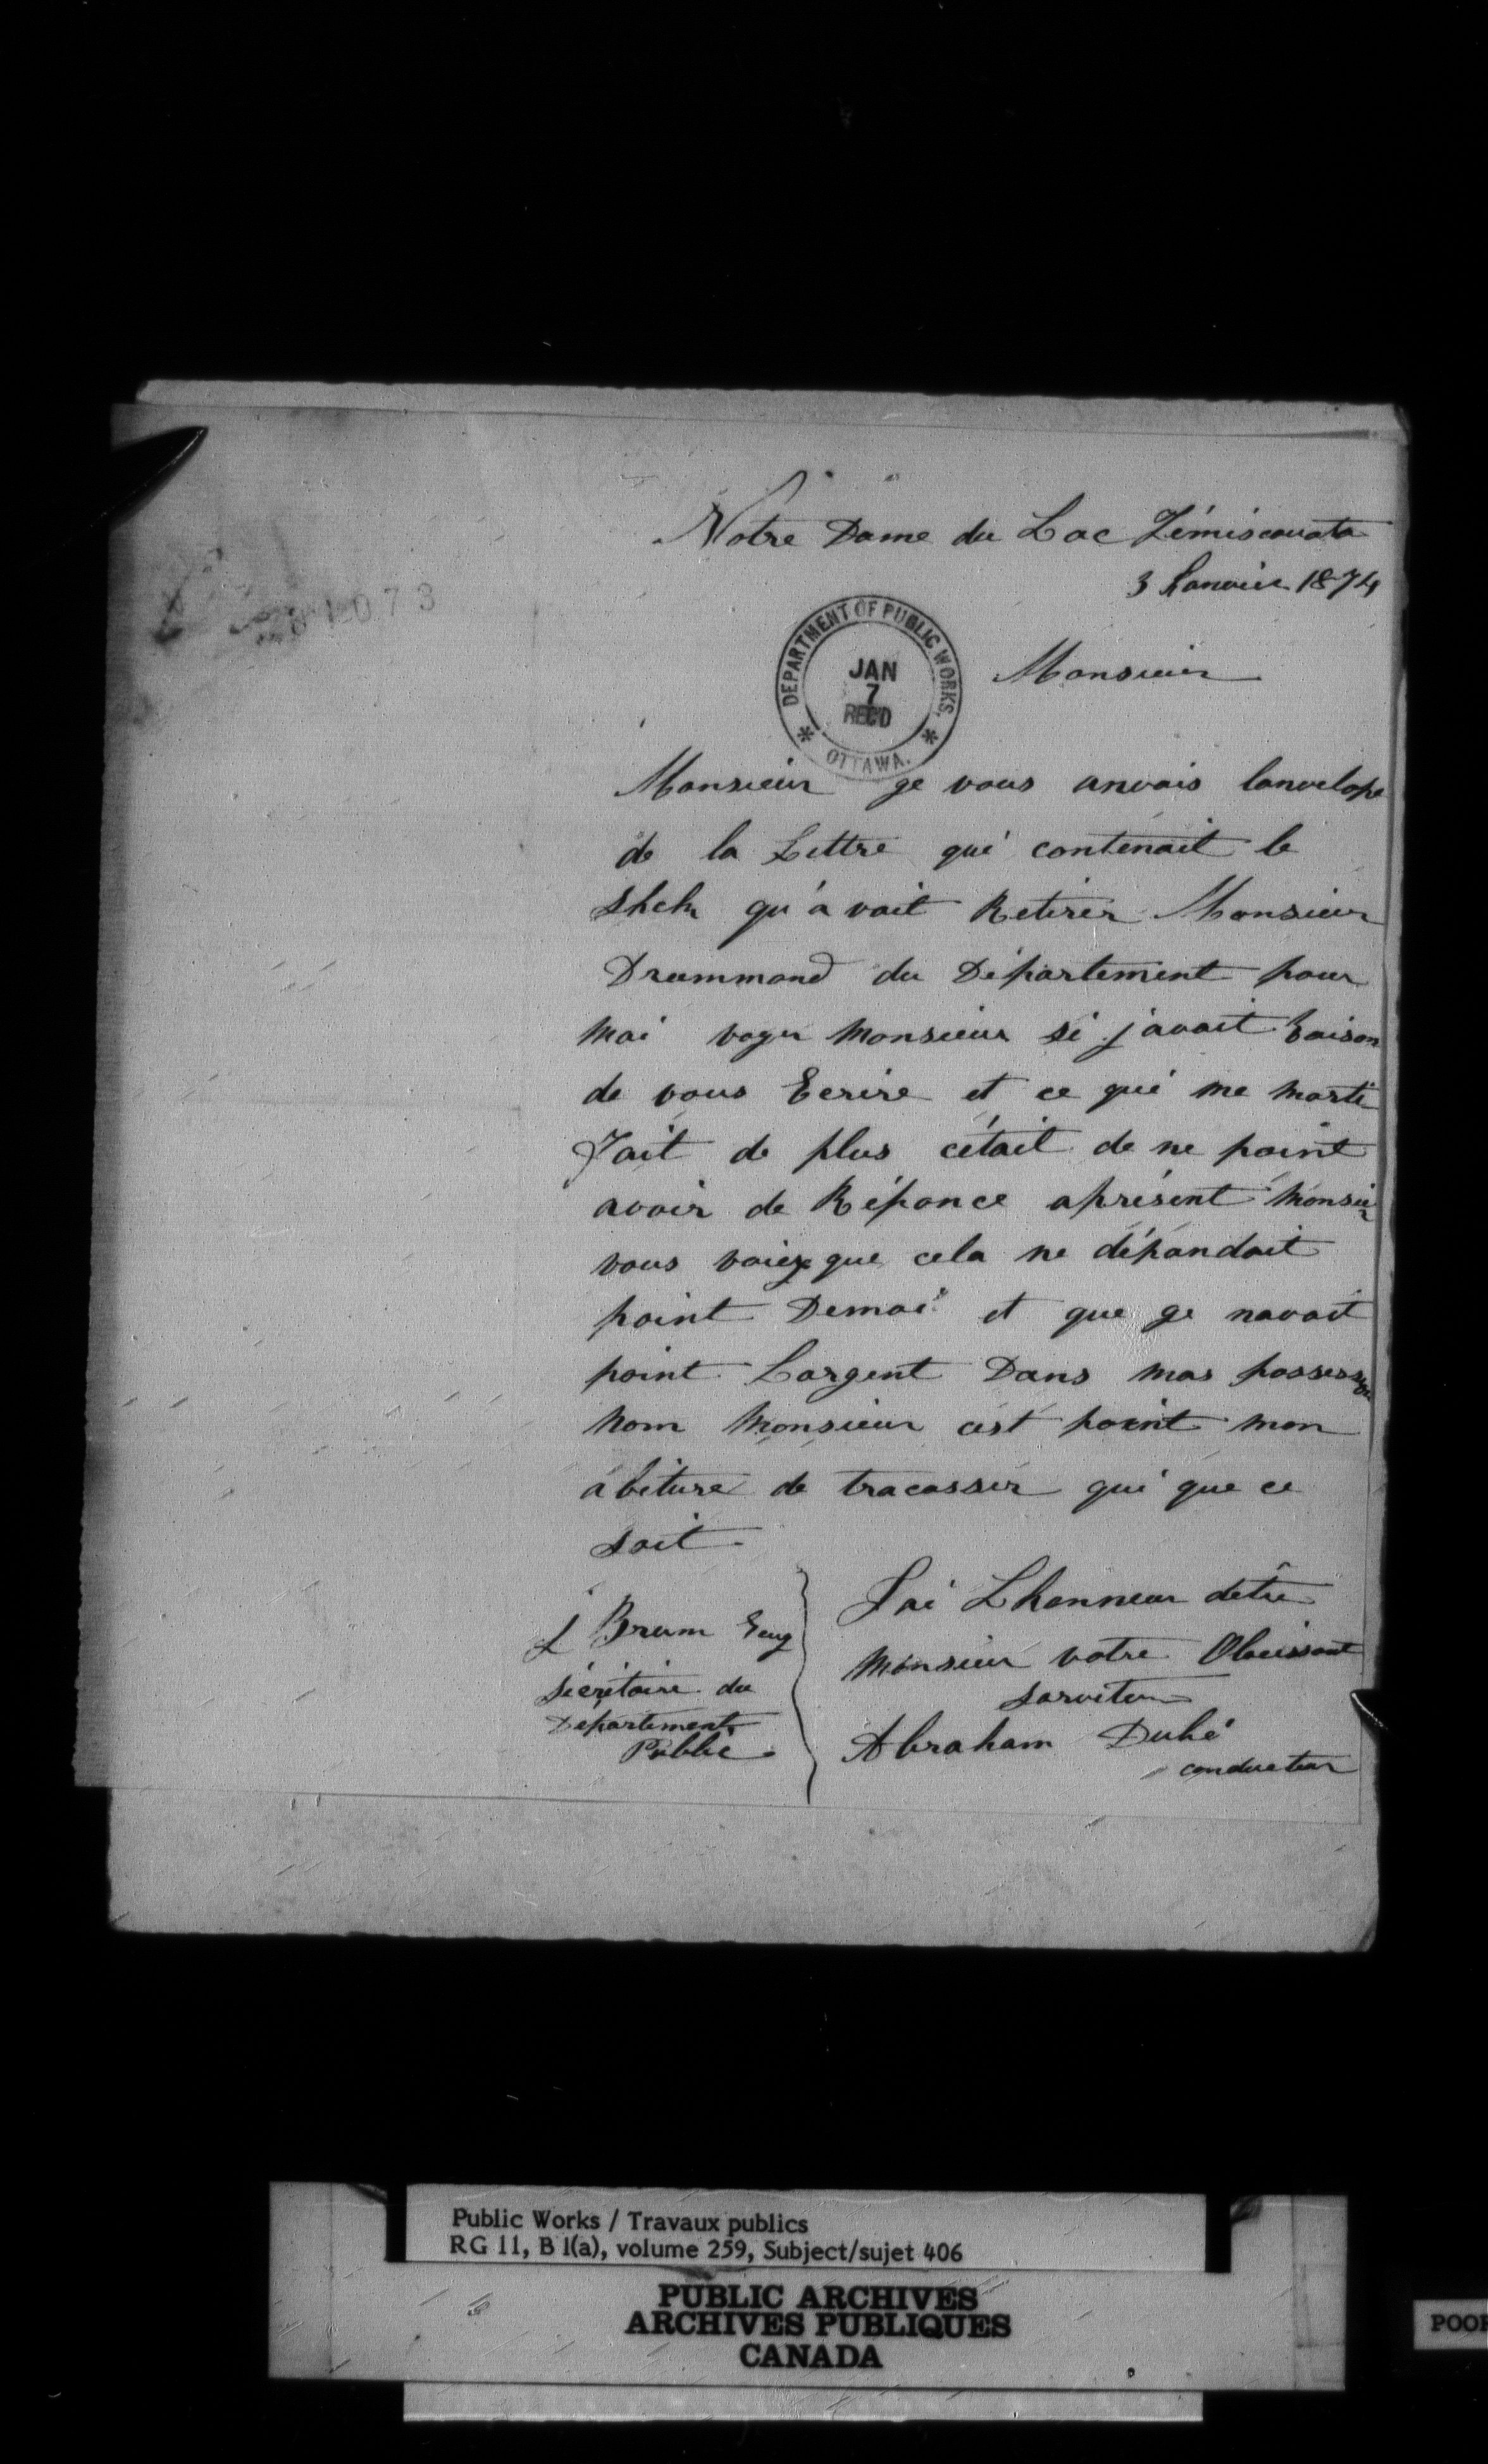 Notre Dame du Lac Témiscouata
3 Janvier 1874
DEPARTMENT OF PUBLIC WORKS,
JAN
7
REC'D
OTTAWA.
Monsieur
Monsieur ge vous anvois lanvelope
de la Lettre qui contenait le
shek qu'a vait Retirer Monsieur
Drummond du Département pour
moi voyer Monsieur si j'avait Raison
de vous Ecrire et ce qui me morti
fait de plus cétait de ne point
avoir de Réponce aprésent Monsieur
vous voiez que cela ne dépandait
point Demoi et que ge navait
point Largent Dans mas possession
nom Monsieur cest point mon
abiture de tracasser qui que ce
soit
Jai Lhonneur dêtre
Monsieur votre Obeissant
sarviteur
Abraham Dubé
conducteur
J Brawn
Sécritaire du
Département
Public
073
Public Works / Travaux publics
RG 11, B 1(a), volume 259, Subject/sujet 406
PUBLIC ARCHIVES
ARCHIVES PUBLIQUES
CANADA